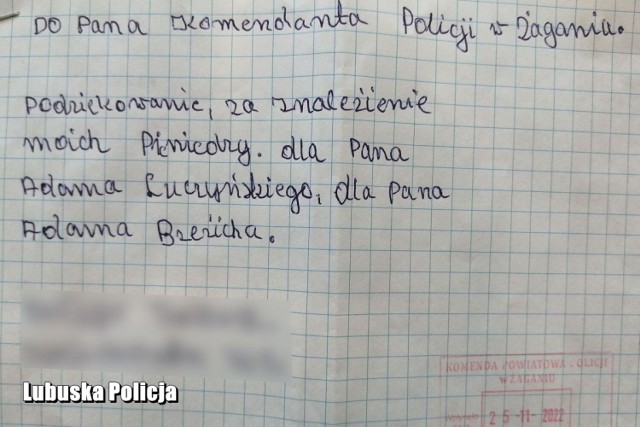 DO Pana Komendanta Policji w Żaganiu.
Podziękowanie, za znależienie
moich Piniędzy. dla Pana
Adama Łuczyńskiego, dla Pana
Adama
Lubuska Policja
KOMENDA POWIATOWA POLICJI
W ŻAGANIU
25 -11- 2022